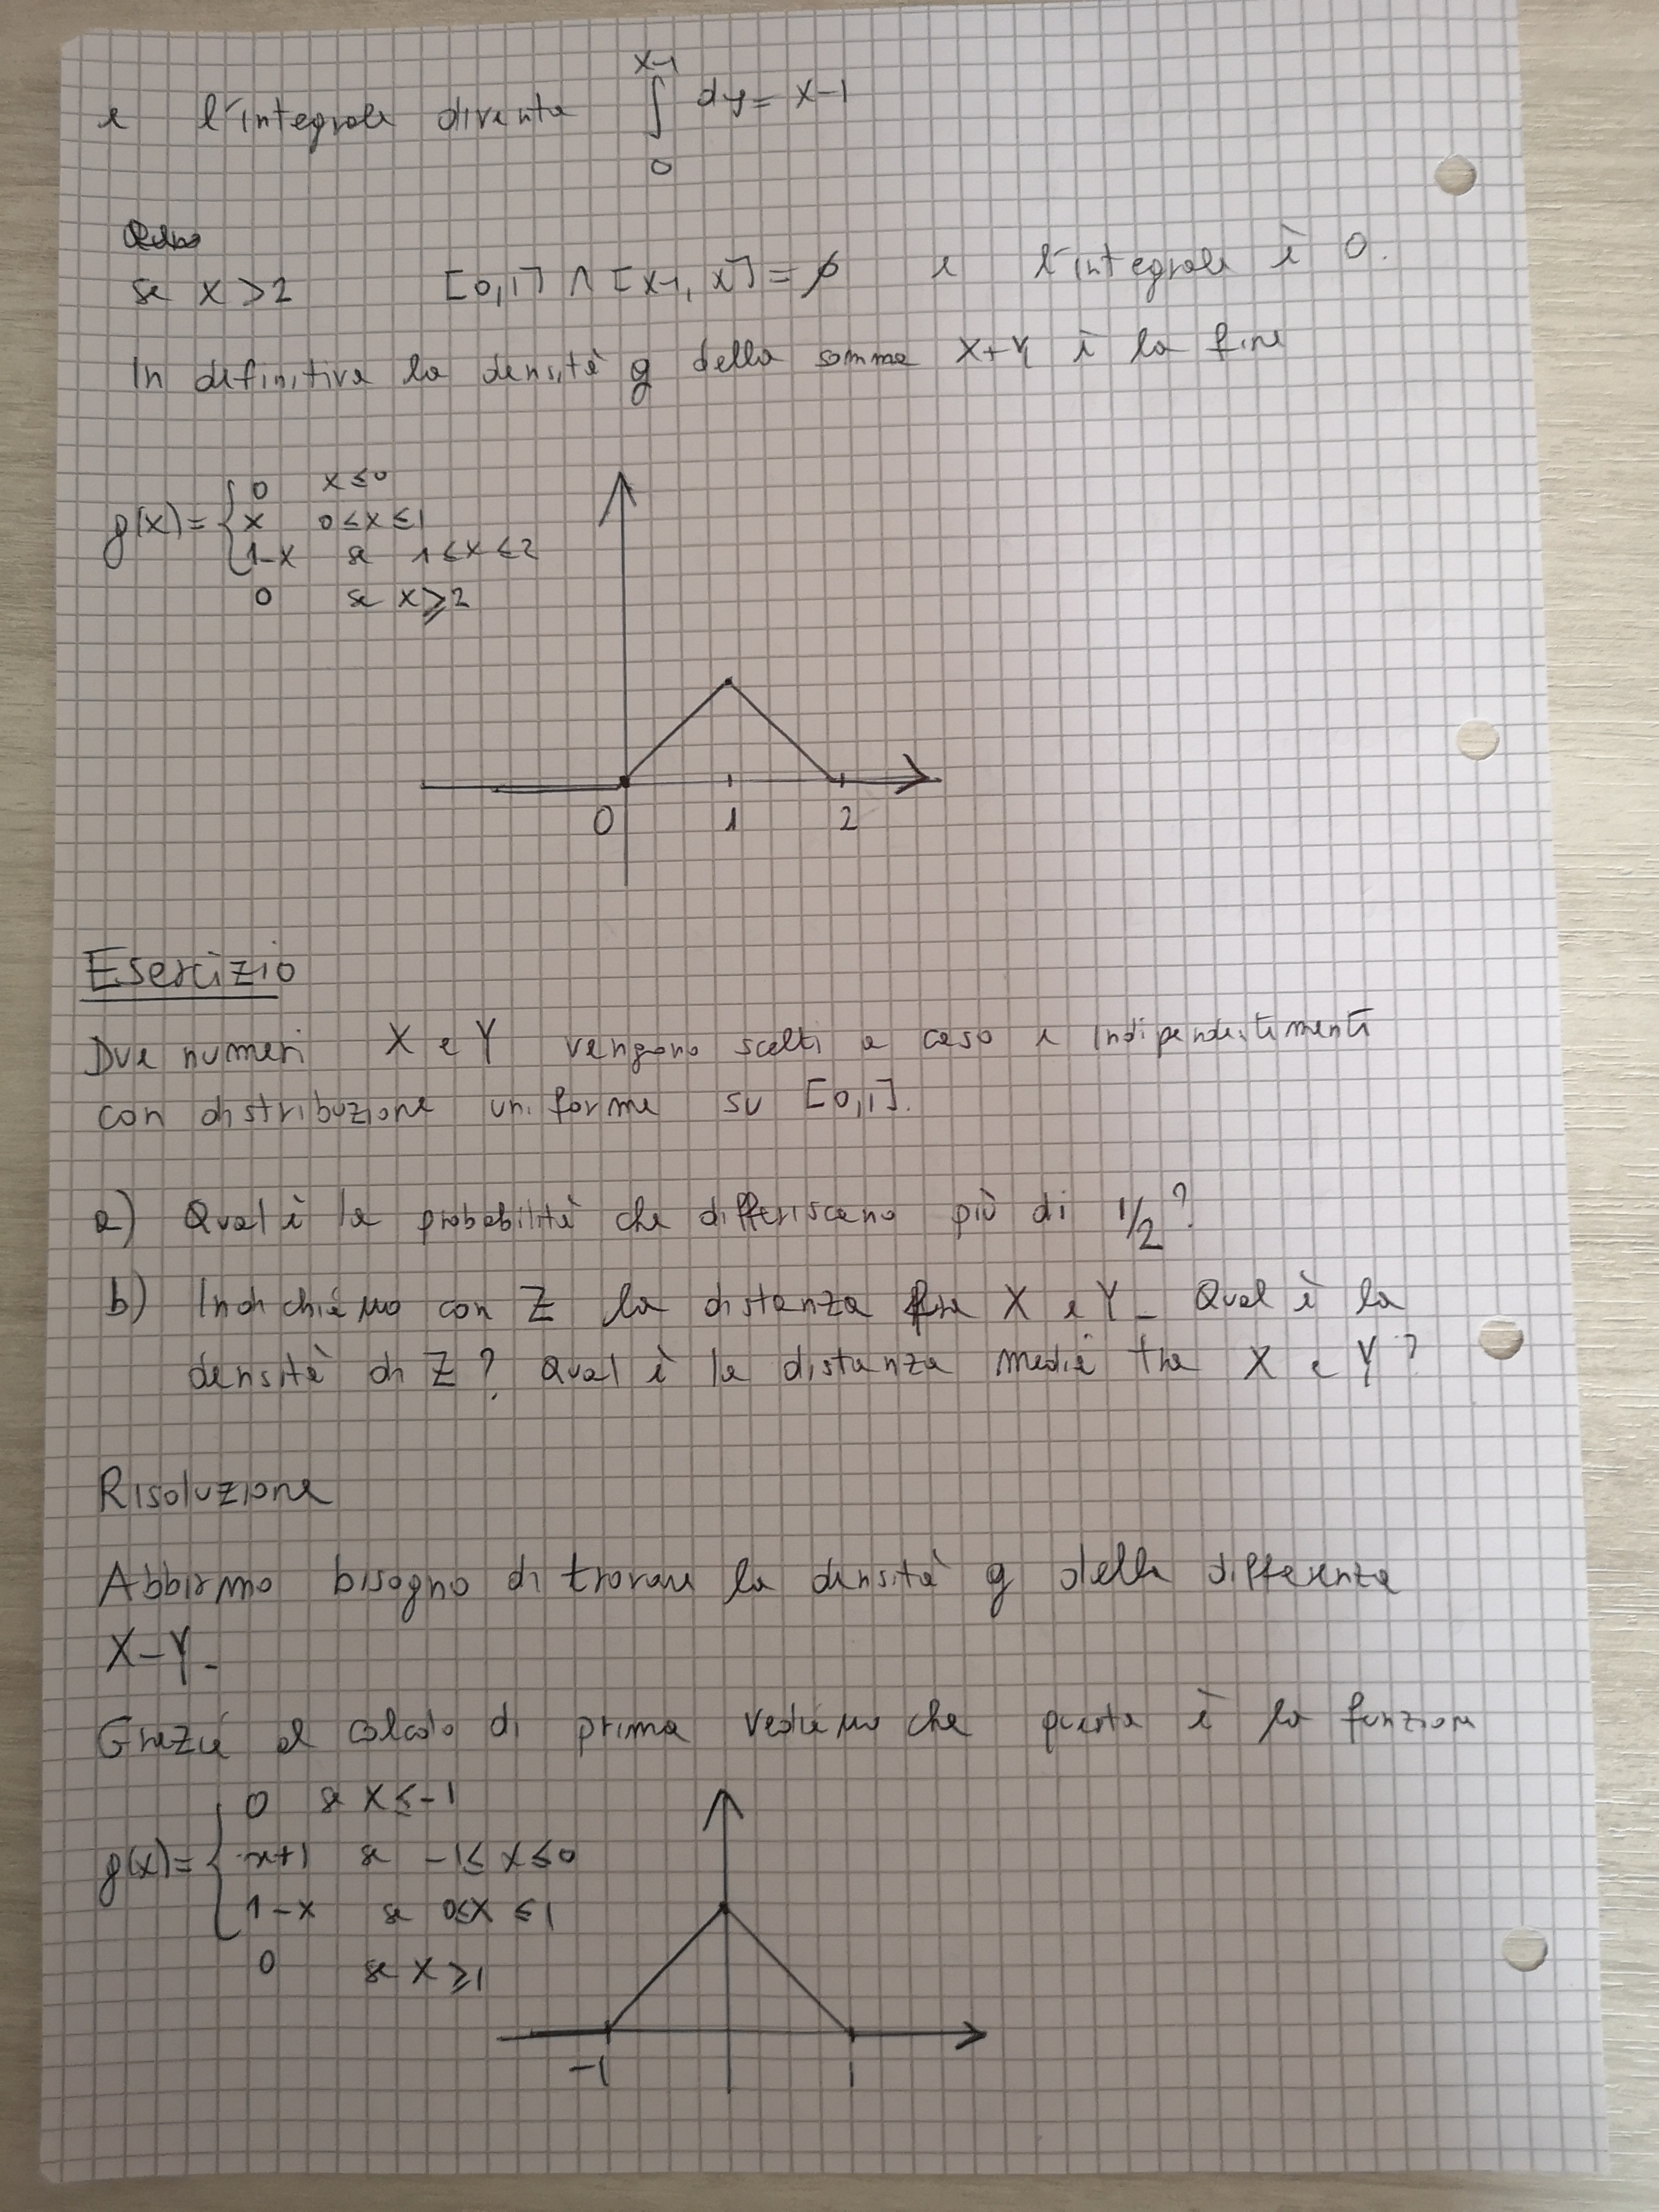 e l'integrale diventa ∫_0^{x-1} dy = x-1
se x>2 [0,1] ∩ [x-1, x] = ∅ e l'integrale è 0.
In definitiva la densità g della somma X+Y è la fine
g(x)= { 0 x≤0
x 0≤x≤1
1-x se 1≤x≤2
0 se x≥2
0 1 2
Esercizio
Due numeri X e Y vengono scelti a caso e indipendentemente
con distribuzione uniforme su [0,1].
a) Qual è la probabilità che differiscano più di 1/2?
b) Indichiamo con Z la distanza fra X e Y. Qual è la
densità di Z? Qual è la distanza media tra X e Y?
Risoluzione
Abbiamo bisogno di trovare la densità g della differenza
X-Y.
Grazie al calcolo di prima vediamo che questa è la funzione
g(x)= { 0 se x≤-1
x+1 se -1≤x≤0
1-x se 0≤x≤1
0 se x≥1
-1 1